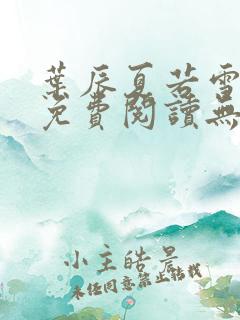 葉辰夏若雪
免費閱讀無
小主皓景
未经同意禁止转载